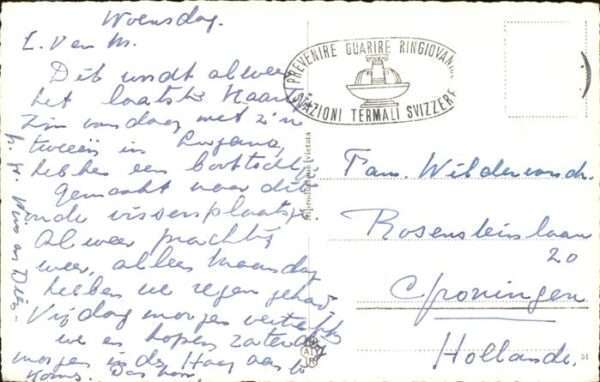 Woensdag.
L. V en M.
Dit wordt alweer
het laatste kaartje
Zijn vandaag met z'n
tweeën in Lugano,
hebben een boottocht
gemaakt naar dit
oude vissersplaatsje
Alweer prachtig
weer, alleen Maandag
hebben we regen gehad
Vrijdag morgen vertrekken
we en hopen zaterdag
morgen in den Haag aan te
komen.
PREVENIRE GUARIRE RINGIOVANIRE
STAZIONI TERMALI SVIZZERE
Fam.
Rosensteinlaan
20
Groningen
Hollande.